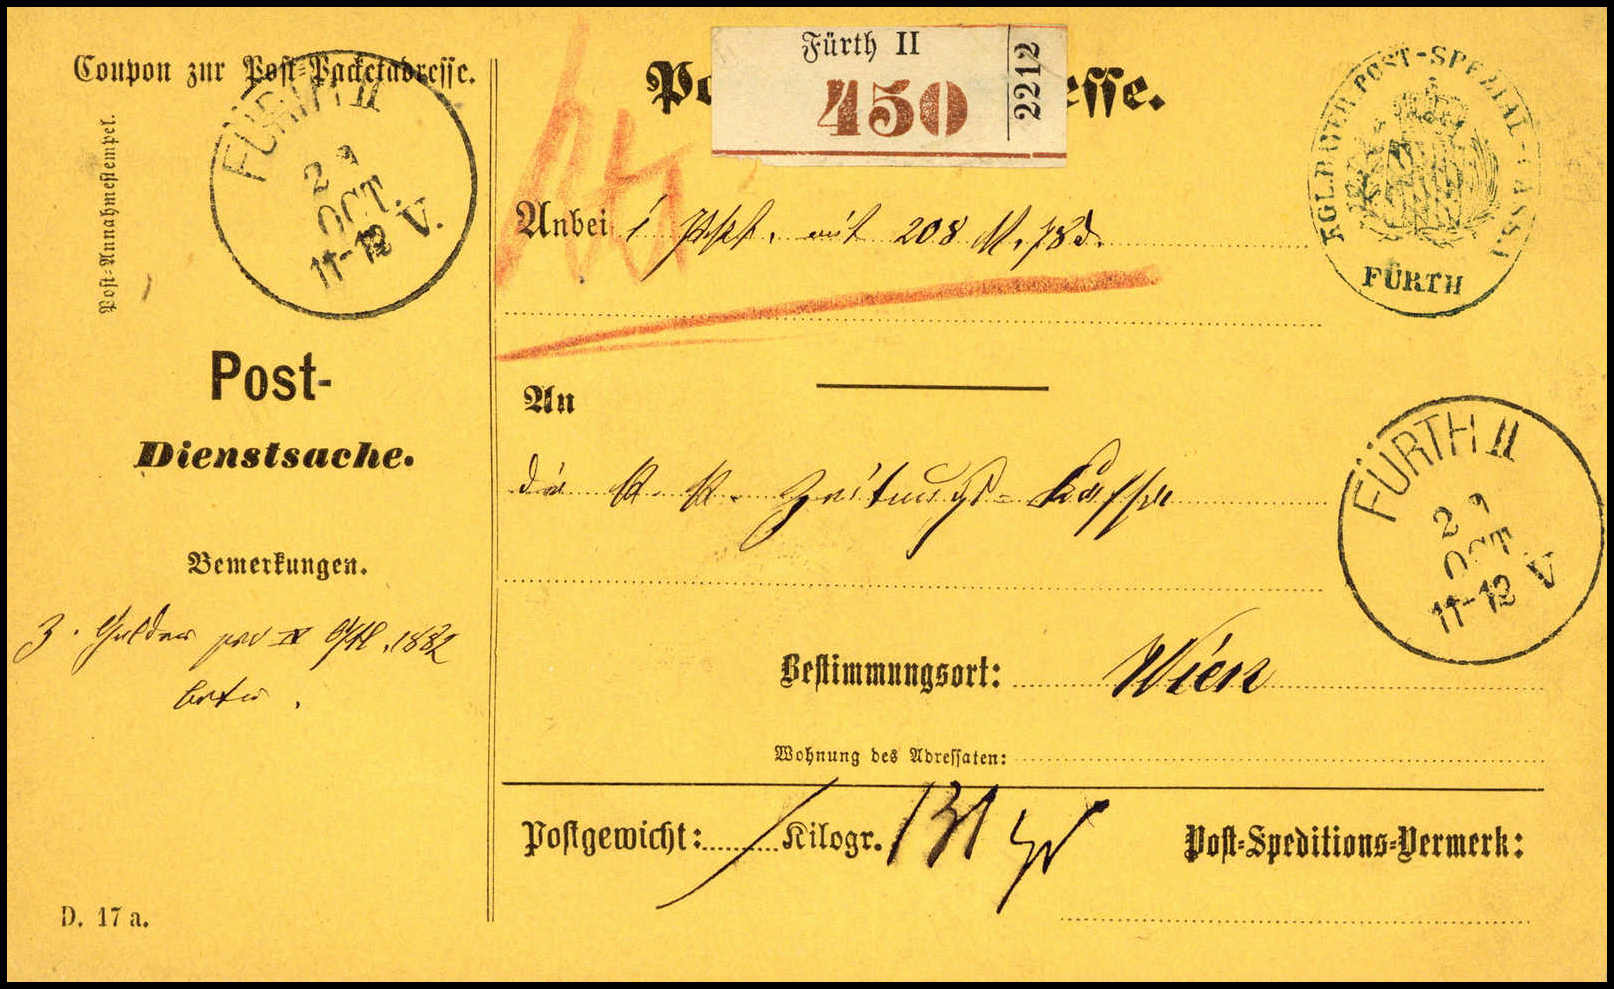 Coupon zur Post-Packetadresse.
Post-Annahmestempel.
FÜRTH II
2 9
OCT.
11-12 V.
Post-
Dienstsache.
Bemerkungen.
3. Gulden per IV 1882
D. 17 a.
Fürth II
450
2212
esse.
KGL.BAYER.POST-SPEZIAL-CASSA
FÜRTH
Anbei 1 mit 208 M. 78 d.
An
die k. k. Zeitungs-Kasse
FÜRTH II
2 9
OCT
11-12 V
Bestimmungsort: Wien
Wohnung des Adressaten:
Postgewicht: Kilogr. 131 gr
Post-Speditions-Vermerk: